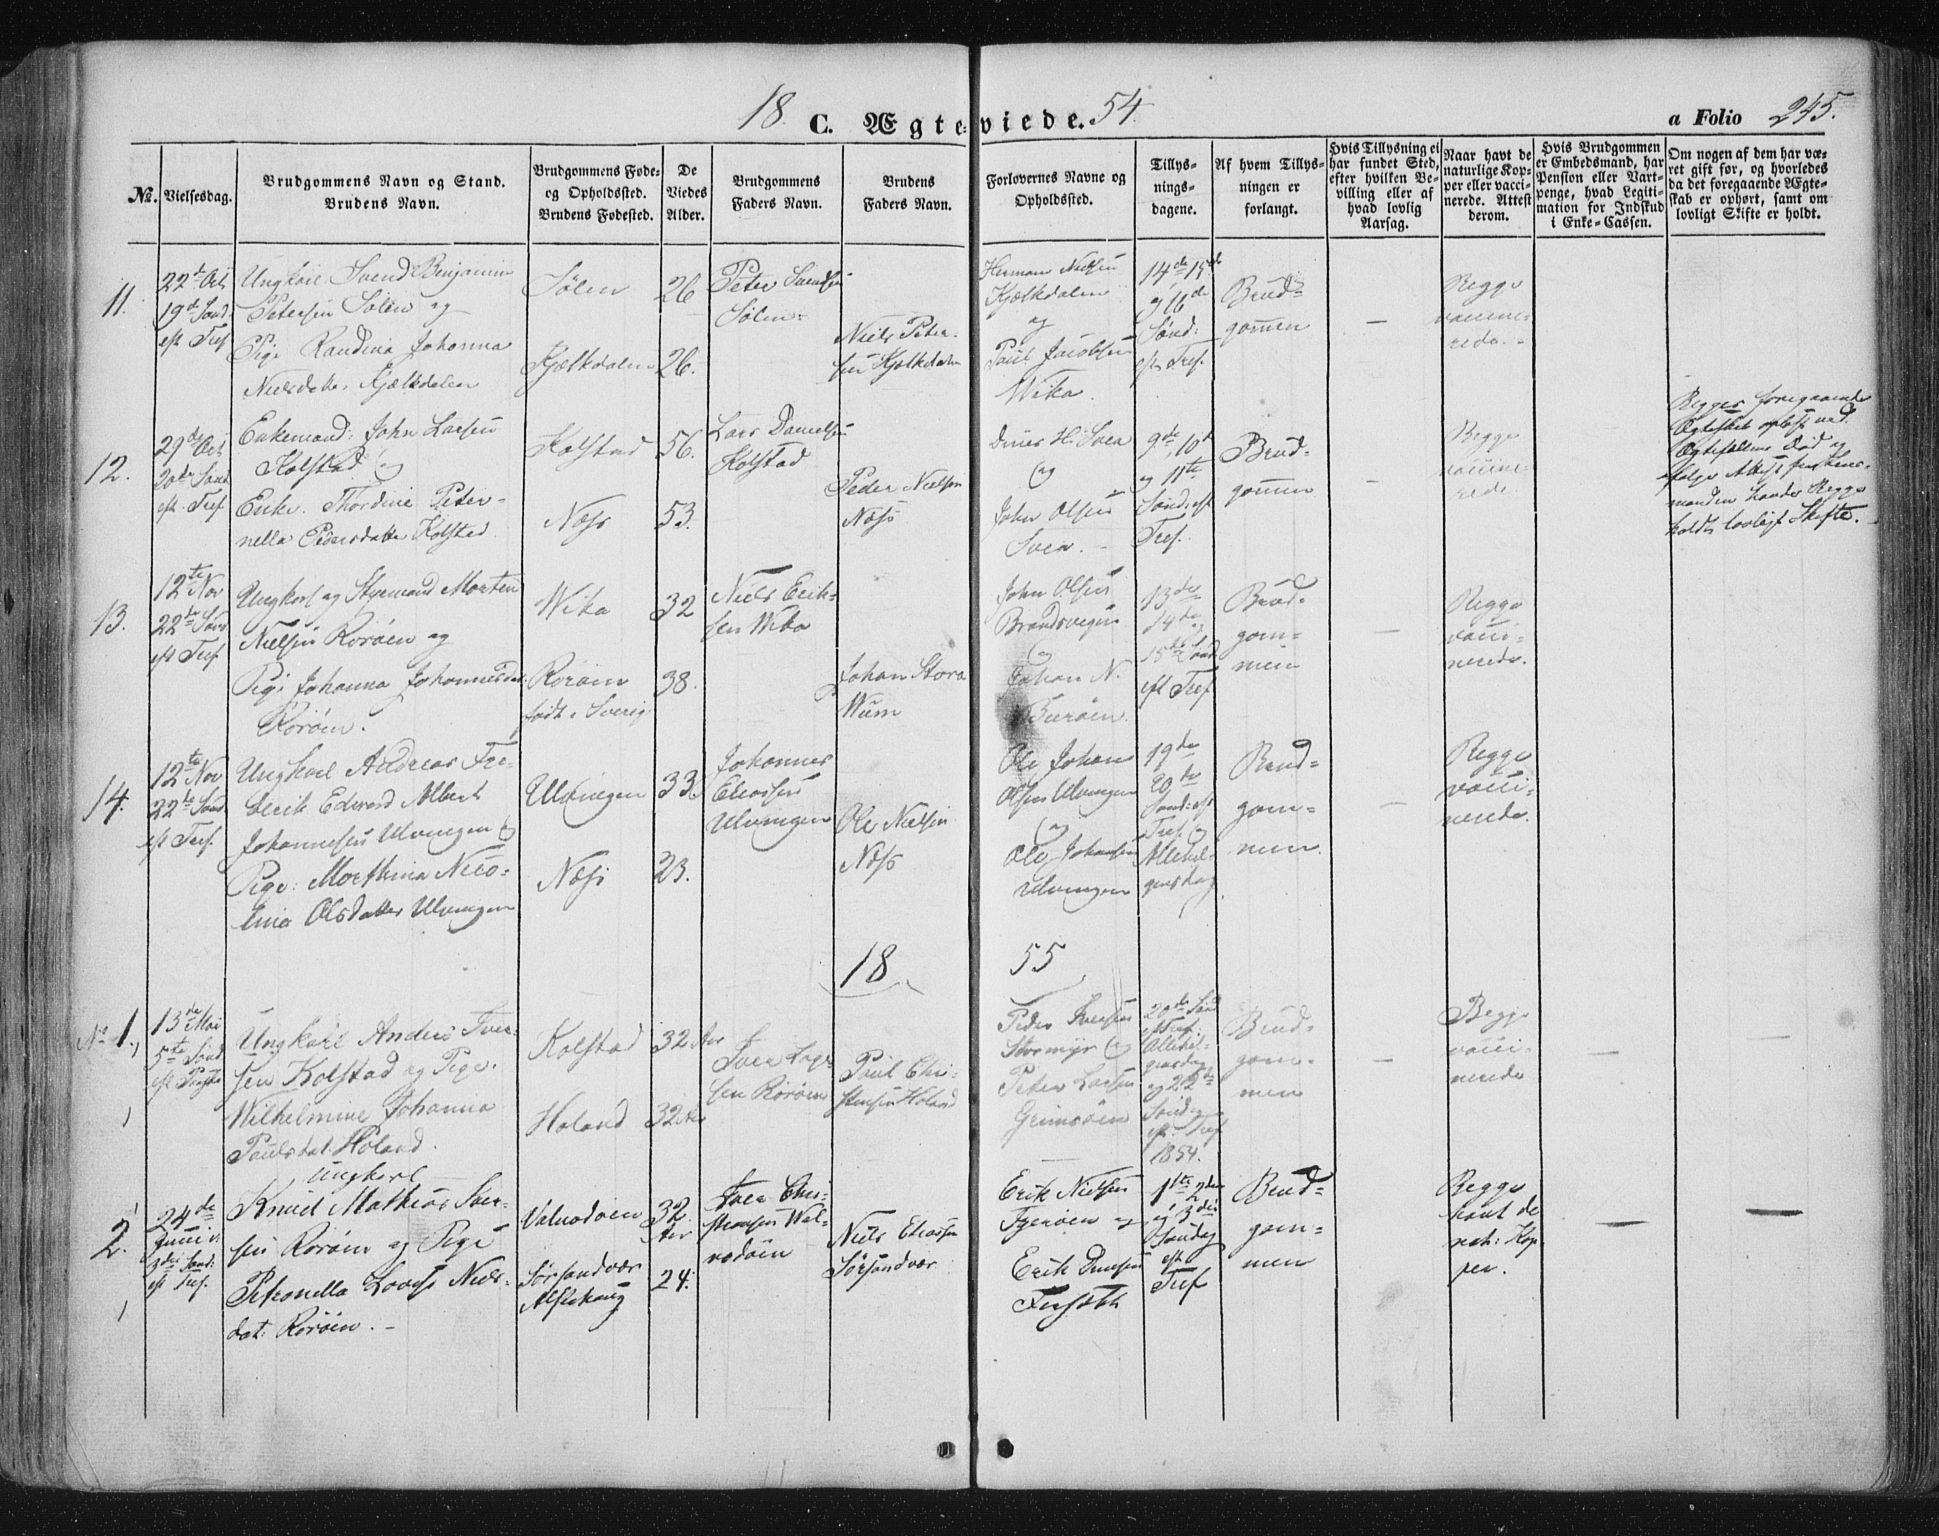 18 C. Ægteviede. 54. a Folio 245.
No.
Vielsesdag.
Brudgommens Navn og Stand.
Brudens Navn.
Brudgommens Føde-
og Opholdssted.
Brudens Fødested.
De
Viedes
Alder.
Brudgommens
Faders Navn.
Brudens
Faders Navn.
Forlovernes Navne og
Opholdssted.
Tillys-
nings-
dagene.
Af hvem Tillys-
ningen er
forlangt.
Hvis Tillysning ei
har fundet Sted,
efter hvilken Be-
villing eller af
hvad lovlig
Aarsag.
Naar havt de
naturlige Kop-
per eller vacci-
nerede. Attest
derom.
Hvis Brudgommen
er Embedsmand, har
Pension eller Vart-
penge, hvad Legiti-
mation for Indskud
i Enke-Cassen.
Om nogen af dem har væ-
ret gift før, og hvorledes
da det foregaaende Ægte-
skab er ophørt, samt om
lovligt Skifte er holdt.
11.
22de Oct
19de Sønd
eft Tref
Ungkarl Svend Benjamin
Petersen Sølen og
Pige Randina Johanna
Nielsdatter Kjælkdalen
Sølen
Kjælkdalen
26
26.
Peter Svendsen
Sølen
Niels Peter-
sen Kjelkdalen
Herman Nielsen
Kjælkdalen
og
Paul Jacobsen
Wika
14de 15de
og 16de
Sønd:
eft Tref.
Brud-
gommen
—
Begge
vaccine-
rede.
12.
29de Oct
20de Sønd
eft Tref
Enkemand: John Larsen
Kolstad og
Enke. Thordine Peter-
nella Pedersdatter Kolstad
Kolstad
Næss
56.
53.
Lars Danielsen
Kolstad
Peder Nielsen
Næss
og
John Olsen
9de, 10de
og 11te
Sønd: eft
Tref.
Brud-
gommen
—
Begge
vaccine-
rede.
Begges foregaaende
Ægteskab opløst ved
Ægtefællens Død og
holdt lovligt Skifte.
13.
12te Nov
22de Sønd
eft Tref.
Ungkarl og Styrmand Morten
Nielsen Rorøen og
Pige Johanna Johannesdat:
Rorøen.
Wika
Rorøen
født i Sverig
32
38.
Niels Erik-
sen Wika
Johan Stora
Wum
John Olsen
Brandsvegen
og
Johan N.
13de
14de og
15de Sønd
eft Tref
Brud-
gom-
men
—
Begge
vacci-
nerede.
14.
12te Nov
22de Sønd
eft Tref.
Ungkarl Andreas Fre-
derik Edvard Albert
Johannesen Ulvingen og
Pige: Morthina Nico-
lina Olsdatter Ulvingen
Ulvingen
Næss
33.
23.
Johannes
Eliassen
Ulvingen
Ole Nielsen
Næss
Ole Johan
Olsen Ulvingen
og
Ole Johansen
Ulvingen
19de
20de
Sønd: eft
Tref og
Allehel-
gensdag
Brud-
gom-
men.
—
Begge
vacci-
nerede.
18 55
No 1.
13de Mai
5te Sønd
eft Paaske
Ungkarl Anders Iver-
sen Kolstad og Pige.
Wilhelmine Johanna
Paulsdat. Holand.
Kolstad
Holand
32 Aar
32 Aar
Iver Lars-
sen Rorøen
Paul Chri-
stensen Holand
Peder Iversen
Stormyr og
Peter Larsen
Grimsøen
20de Sønd
eft Tref:
Allehel-
gensdag
og 22de
Sønd
eft. Tref
1854.
Brud-
gom-
men
—
Begge
vacci-
nerede
—
—
2.
24de
Juni
3die Sønd:
eft Tref.
Ungkarl
Knud Mathias Iver-
sen Rorøen og Pige
Petronella Lovise Niels-
dat: Rorøen. —
Valvodøen
Sørsandvær
Alstahaug
32
Aar
24.
Iver Chri-
stensen Wal-
vodøen
Niels Eliassen
Sørsandvær
Erik Nielsen
Tjerøen og
Erik
1ste 2den
og 3die
Søndag
eft
Tref
Brud-
gom-
men
Begge
havt de
nat: Kop-
per.
—
—